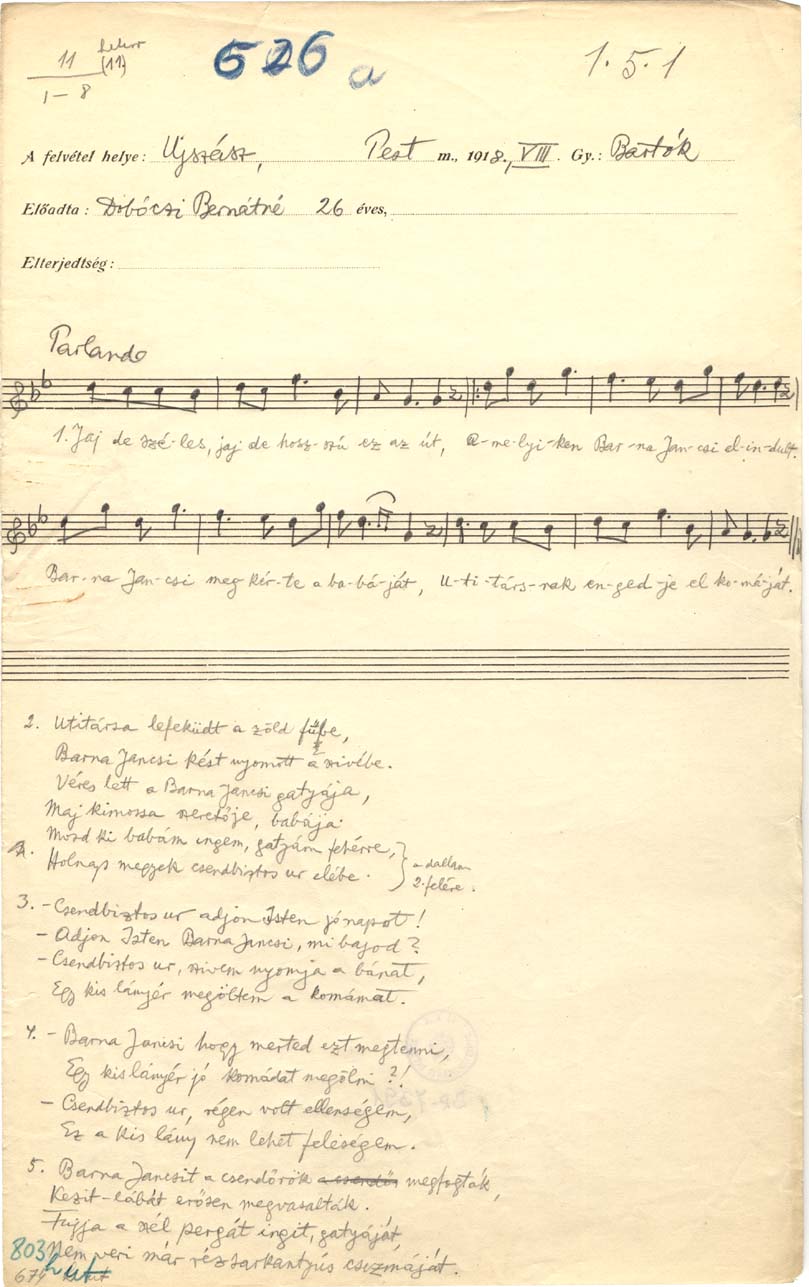 11 (11)
1-8
626 a
1. 5. 1
A felvétel helye: Ujszász, Pest m., 1918, VIII. Gy.: Bartók
Előadta: Dobóczi Bernátné 26 éves,
Elterjedtség:
Parlando
1. Jaj de szé-les, jaj de hosz-szú ez az út, a-me-lyi-ken Bar-na Jan-csi el-in-dult.
Bar-na Jan-csi meg-kér-te a ba-bá-ját, U-ti-társ-nak en-ged-je el ko-má-ját.
2. Utitársa lefeküdt a zöld fűbe,
Barna Jancsi kést nyomott a szivébe.
Véres lett a Barna Jancsi gatyája,
Maj kimossa szeretője, babája.
Mosd ki babám ingem, gatyám fehérre,
Holnap megyek csendbiztos ur elébe.
a dallam
2. felére.
3. - Csendbiztos ur adjon Isten jónapot!
- Adjon Isten Barna Jancsi, mi bajod?
- Csendbiztos ur, szivem nyomja a bánat,
Egy kis lányér megöltem a komámat.
4. - Barna Jancsi hogy merted ezt megtenni,
Egy kislányér jó komádat megölni?!
- Csendbiztos ur, régen volt ellenségem,
Ez a kis lány nem lehet feleségem.
5. Barna Jancsit a csendőrök a csendőr megfogták,
Kezit-lábát erősen megvasalták.
Fujja a szél pergát ingit, gatyáját,
803 Nem veri már rézsarkantyús csizmáját.